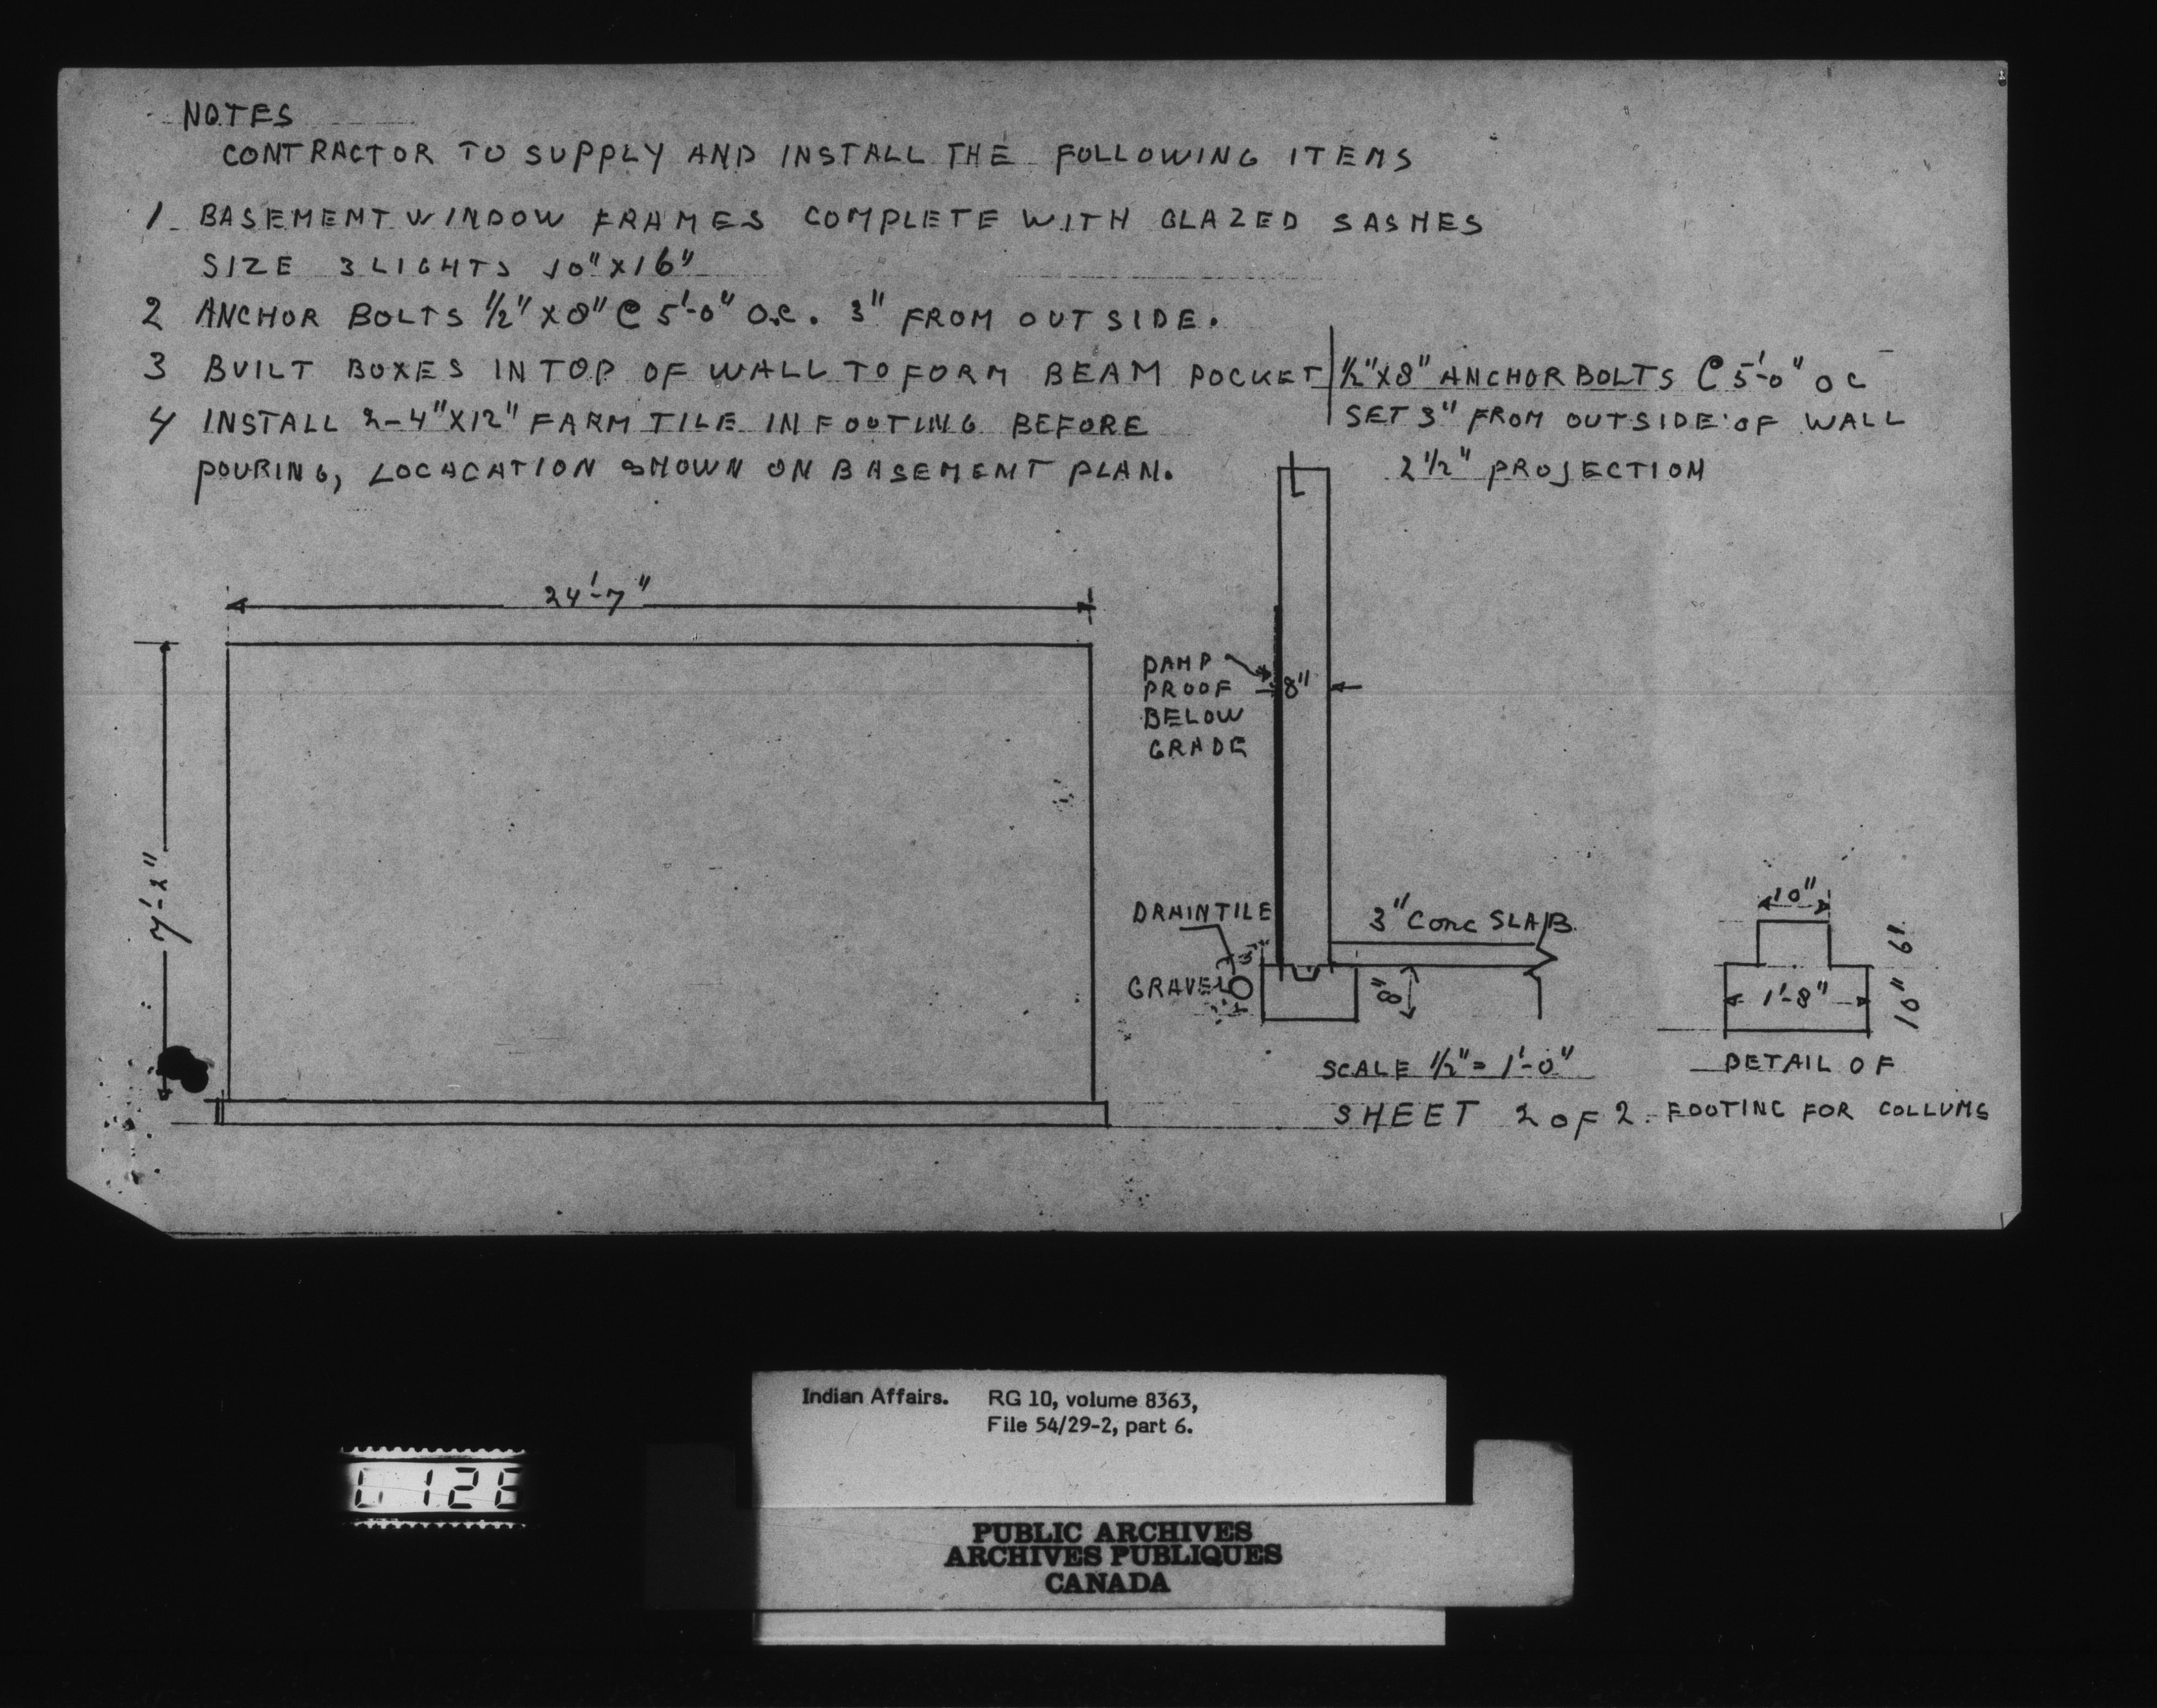 NOTES
CONTRACTOR TO SUPPLY AND INSTALL THE FOLLOWING ITEMS
1. BASEMENT WINDOW FRAMES COMPLETE WITH GLAZED SASHES
SIZE 3 LIGHTS 10" X 16"
2 ANCHOR BOLTS 1/2" X 8" @ 5'-0" O.C. 3" FROM OUTSIDE.
3 BUILT BOXES IN TOP OF WALL TO FORM BEAM POCKET
4 INSTALL 2-4" X 12" FARM TILE IN FOOTING BEFORE
POURING, LOCACATION SHOWN ON BASEMENT PLAN.
1/2" X 8" ANCHOR BOLTS @ 5'-0" OC
SET 3" FROM OUTSIDE OF WALL
2 1/2" PROJECTION
24'-7"
7'-2"
DAMP
PROOF
BELOW
GRADE
8"
DRAINTILE
GRAVEL
3"
3" Conc SLAB.
8"
10"
6"
1'-8"
10"
SCALE 1/2" = 1'-0"
SHEET 2 OF 2.
DETAIL OF
FOOTING FOR COLLUMS
Indian Affairs. RG 10, volume 8363,
File 54/29-2, part 6.
PUBLIC ARCHIVES
ARCHIVES PUBLIQUES
CANADA